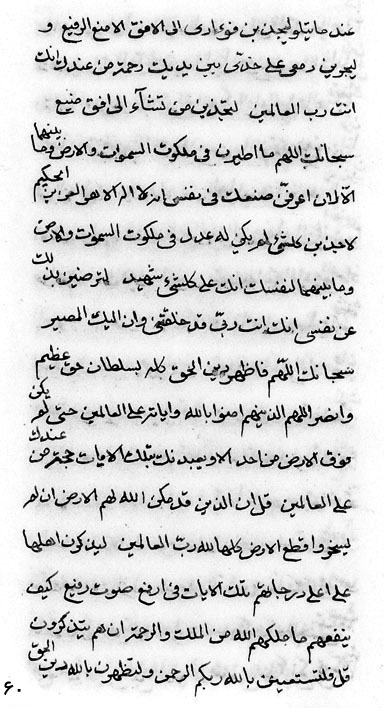 عند ما يتلو ليجذبن فؤادى الى الافق الامنع الرفيع و
ليجرين دمعى على خدى بين يديك رحمة من عندك انك
انت رب العالمين لتجذبن من تشآء الى افق منيع
سبحانك اللهم ما اطيرن فى ملكوت السموات والارض وما بينهما
الا لان اعرفن صنعك فى نفسى انه لا اله الا هو العزيز الحكيم
لاجذبن كلشئ لم يكن له عدل فى ملكوت السموات والارض
وما بينهما لنفسك انك على كلشئ شهيد لترضين بذلك
عن نفسى انك انت ربى قد خلقتنى وان اليك المصير
سبحانك اللهم فاظهر دين الحق كله بسلطان حق عظيم
وانصر اللهم الذينهم امنوا بالله واياته على العالمين حتى لم يكن
فوق الارض من احد الا ويعبدنك بتلك الايات حجة من عندك
على العالمين قل ان الذين قد مكن الله لهم الارض ان لم
ليسخروا قطع الارض كلها لله رب العالمين ليدركون اهلها
على اعلى درجاتهم تلك الايات فى ارفع صوت رفيع كيف
ينفعهم ما ملكهم الله من الملك والرحمة ان هم يتذكرون
قل فلتستعينن بالله ربكم الرحمن ولتظهرون بالله دين الحق
٦٠